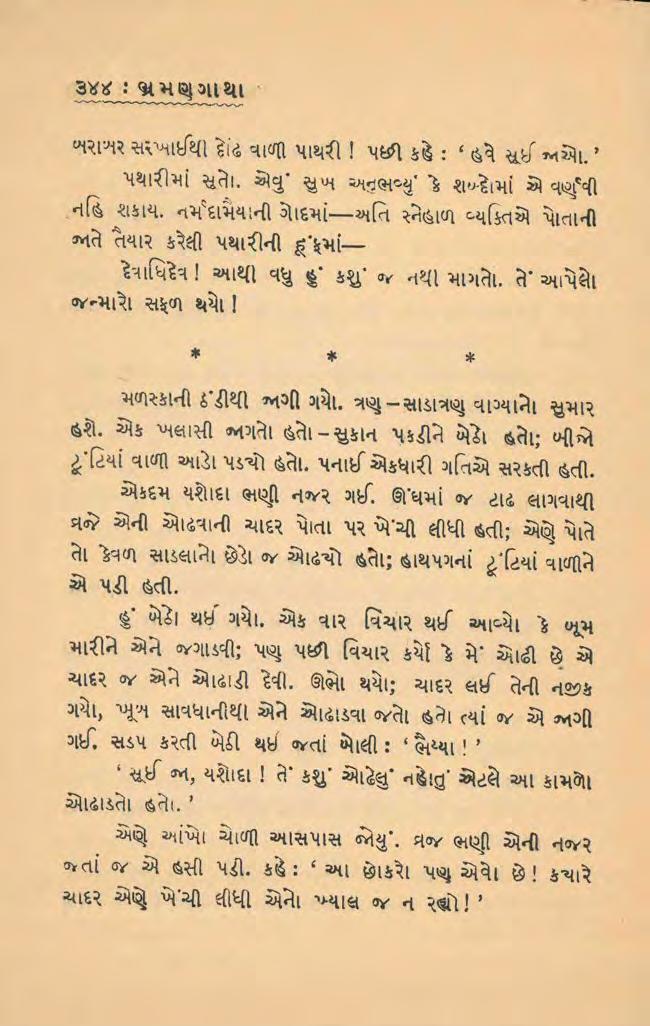 ૩૪૪ : ભ્રમણગાથા
બરાબર સરખાઈથી દોંઢ વાળી પાથરી ! પછી કહે : ‘ હવે સૂઈ જાઓ. ’
પથારીમાં સુતો. એવું સુખ અનુભવ્યું કે શબ્દોમાં એ વર્ણવી
નહિ શકાય. નર્મદામૈયાની ગોદમાં—અતિ સ્નેહાળ વ્યક્તિએ પોતાની
જાતે તૈયાર કરેલી પથારીની હૂંફમાં—
દેવાધિદેવ ! આથી વધુ હું કશું જ નથી માગતો. તેં આપેલો
જન્મારો સફળ થયો !
* * *
મળસ્કાની ઠંડીથી જાગી ગયો. ત્રણ – સાડાત્રણ વાગ્યાનો સુમાર
હશે. એક ખલાસી જાગતો હતો – સુકાન પકડીને બેઠો હતો; બીજો
ટૂંટિયાં વાળી આડો પડ્યો હતો. પનાઈ એકધારી ગતિએ સરકતી હતી.
એકદમ યશોદા ભણી નજર ગઈ. ઊંઘમાં જ ટાઢ લાગવાથી
વ્રજે એની ઓઢવાની ચાદર પોતા પર ખેંચી લીધી હતી; એણે પોતે
તો કેવળ સાડલાનો છેડો જ ઓઢ્યો હતો; હાથપગનાં ટૂંટિયાં વાળીને
એ પડી હતી.
હું બેઠો થઈ ગયો. એક વાર વિચાર થઈ આવ્યો કે બૂમ
મારીને એને જગાડવી; પણ પછી વિચાર કર્યો કે મેં ઓઢી છે એ
ચાદર જ એને ઓઢાડી દેવી. ઊભો થયો; ચાદર લઈ તેની નજીક
ગયો, ખૂબ સાવધાનીથી એને ઓઢાડવા જતો હતો ત્યાં જ એ જાગી
ગઈ. સડપ કરતી બેઠી થઈ જતાં બોલી : ‘ ભૈય્યા ! ’
‘ સૂઈ જા, યશોદા ! તેં કશું ઓઢેલું નહોતું એટલે આ કામળો
ઓઢાડતો હતો. ’
એણે આંખો ચોળી આસપાસ જોયું. વ્રજ ભણી એની નજર
જતાં જ એ હસી પડી. કહે : ‘ આ છોકરો પણ એવો છે ! ક્યારે
ચાદર એણે ખેંચી લીધી એનો ખ્યાલ જ ન રહ્યો ! ’